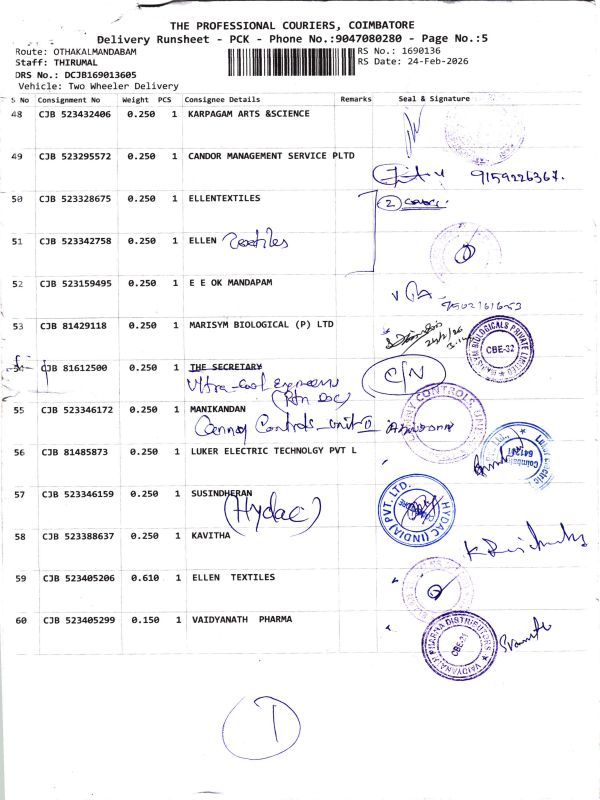 THE PROFESSIONAL COURIERS, COIMBATORE
Delivery Runsheet - PCK - Phone No.:9047080280 - Page No.:5
Route: OTHAKALMANDABAM
RS No.: 1690136
Staff: THIRUMAL
RS Date: 24-Feb-2026
DRS No.: DCJB169013605
Vehicle: Two Wheeler Delivery
S No Consignment No Weight PCS Consignee Details Remarks Seal & Signature
48 CJB 523432406 0.250 1 KARPAGAM ARTS &SCIENCE
49 CJB 523295572 0.250 1 CANDOR MANAGEMENT SERVICE PLTD
9159226367.
50 CJB 523328675 0.250 1 ELLENTEXTILES
2 covers.
51 CJB 523342758 0.250 1 ELLEN Textiles
52 CJB 523159495 0.250 1 E E OK MANDAPAM
53 CJB 81429118 0.250 1 MARISYM BIOLOGICAL (P) LTD
MARISYM BIOLOGICALS PRIVATE LIMITED
CBE-32
54 CJB 81612500 0.250 1 THE SECRETARY
C/N
55 CJB 523346172 0.250 1 MANIKANDAN
Controls, Unit II
56 CJB 81485873 0.250 1 LUKER ELECTRIC TECHNOLGY PVT L
57 CJB 523346159 0.250 1 SUSINDHERAN
(Hydac)
HYDAC (INDIA) PVT. LTD.
58 CJB 523388637 0.250 1 KAVITHA
59 CJB 523405206 0.610 1 ELLEN TEXTILES
60 CJB 523405299 0.150 1 VAIDYANATH PHARMA
PHARMA DISTRIBUTORS